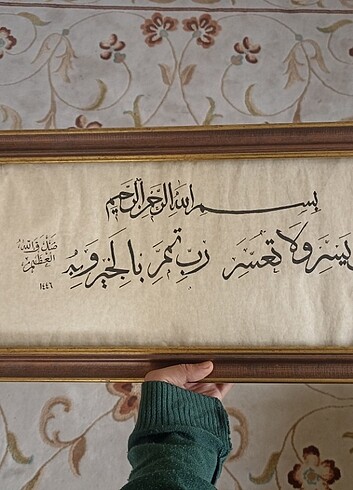 بسم الله الرحمن الرحيم
يسر ولا تعسر رب تمم بالخير وبه
العظيم
١٤٤٦